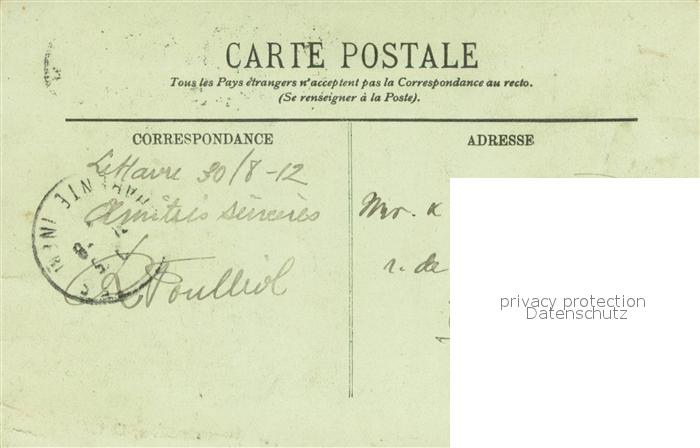 CARTE POSTALE
Tous les Pays étrangers n'acceptent pas la Correspondance au recto.
(Se renseigner à la Poste).
CORRESPONDANCE
Le Havre 30/8-12
Amitiés sincères
ADRESSE
r. de
privacy protection
Datenschutz